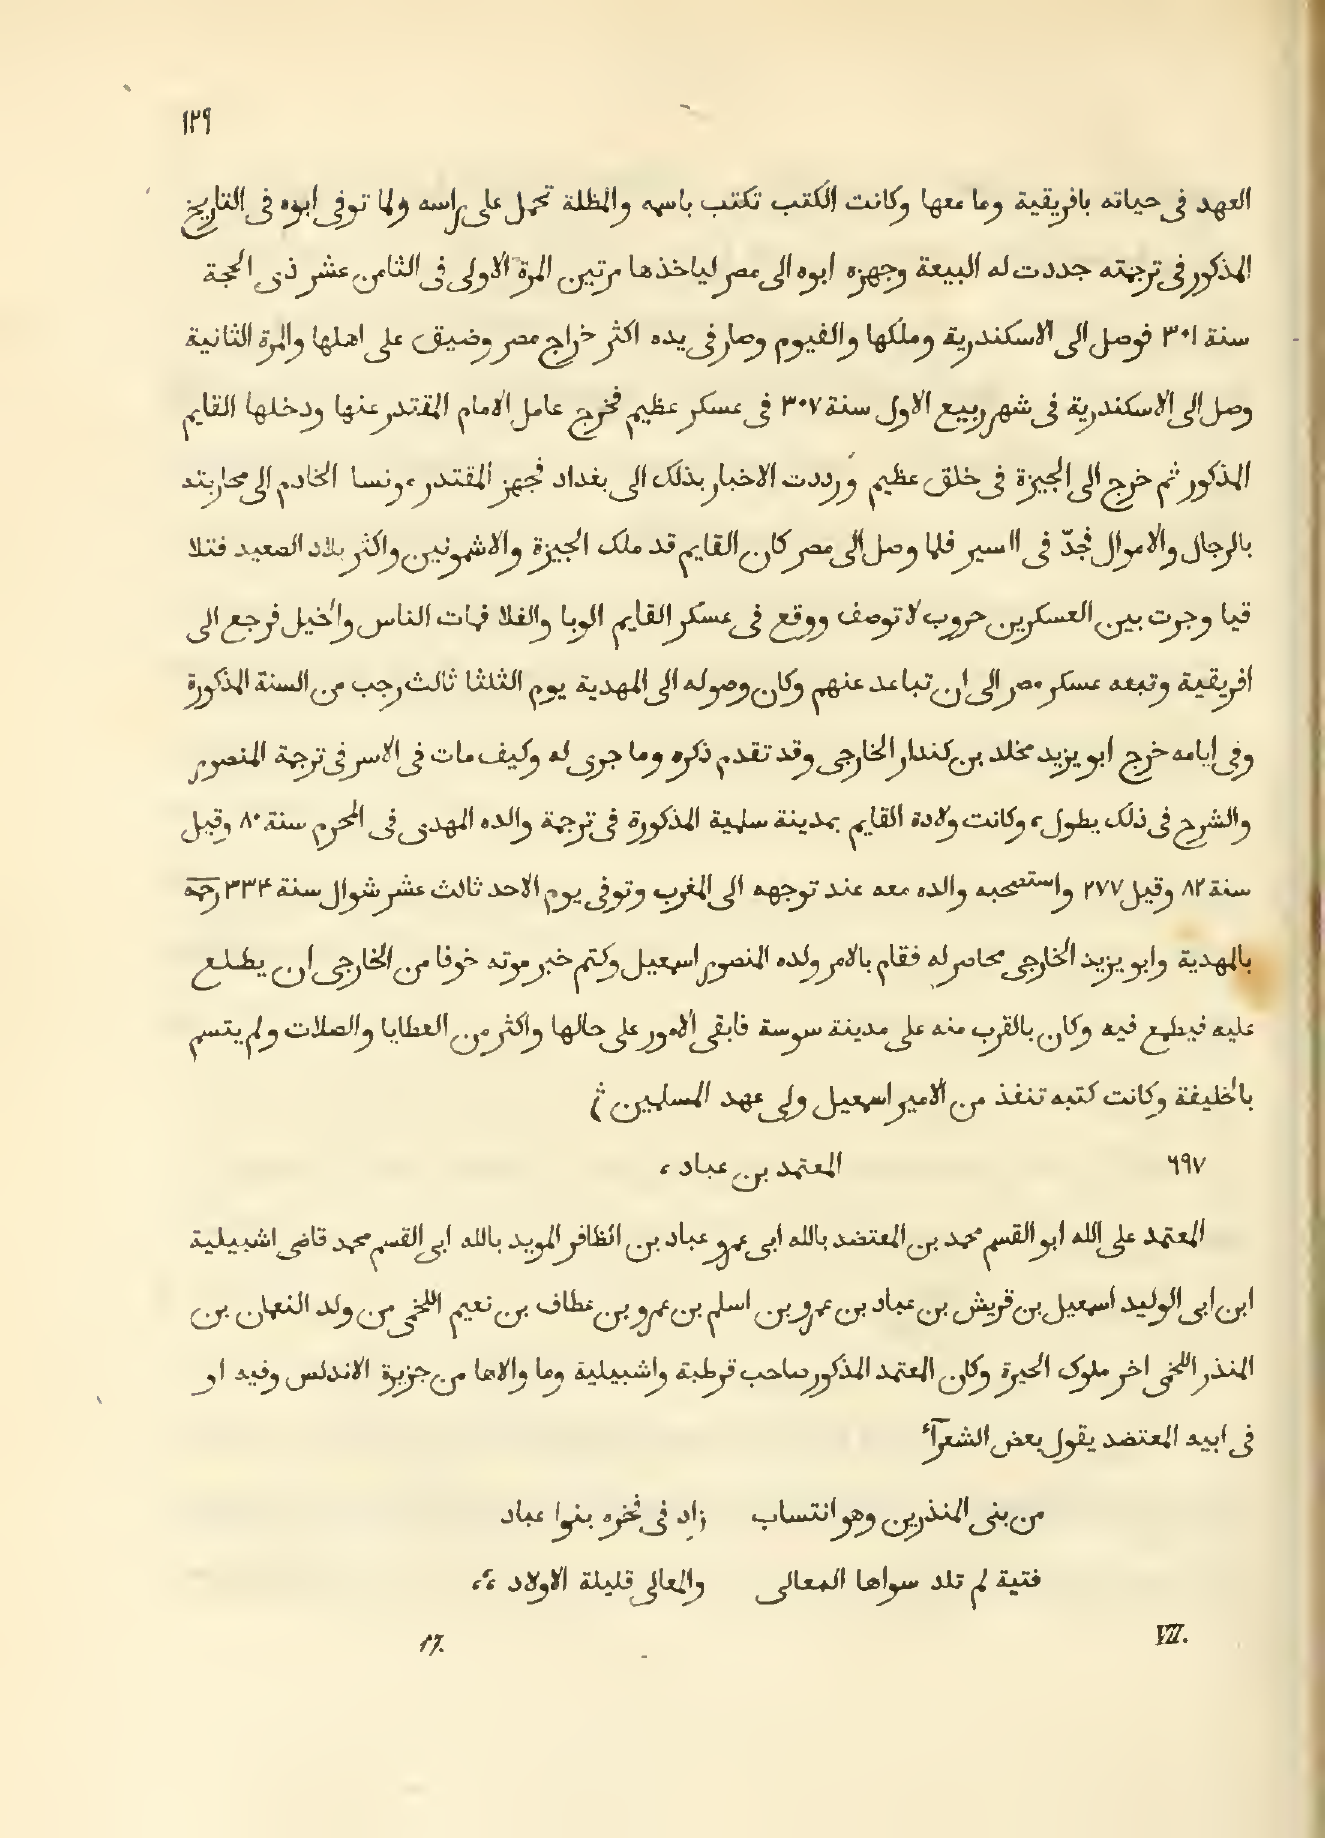 ١٢٩
العهد فى حياته بافريقية وما معها وكانت الكتب تكتب باسمه والمظلة تحمل على راسه ولما توفى ابوه فى التاريخ
المذكور فى ترجمته جددت له البيعة وجهزه ابوه الى مصر لياخذها مرتين المرة الاولى فى الثامن عشر ذى الحجة
سنة ٣٠١ فوصل الى الاسكندرية وملكها والفيوم وصار فى يده اكثر خراج مصر وضيق على اهلها والمرة الثانية
وصل الى الاسكندرية فى شهر ربيع الاول سنة ٣٠٧ فى عسكر عظيم فخرج عامل الامام المقتدر عنها ودخلها القايم
المذكور ثم خرج الى الجيزة فى خلق عظيم ورددت الاخبار بذلك الى بغداد فجهز المقتدر مونسا الخادم الى محاربته
بالرجال والاموال فجدّ فى السير فلما وصل الى مصر كان القايم قد ملك الجيزة والاشمونين واكثر بلاد الصعيد فتلا
قيا وجرت بين العسكرين حروب لا توصف ووقع فى عسكر القايم الوبا والغلا فمات الناس والخيل فرجع الى
افريقية وتبعه عسكر مصر الى ان تباعد عنهم وكان وصوله الى المهدية يوم الثلثا ثالث رجب من السنة المذكورة
وفى ايامه خرج ابو يزيد مخلد بن كندار الخارجى وقد تقدم ذكره وما جرى له وكيف مات فى الاسر فى ترجمة المنصور
والشرح فى ذلك يطول، وكانت ولادة القايم بمدينة سلمية المذكورة فى ترجمة والده المهدى فى المحرم سنة ٨٠ وقيل
سنة ٨٢ وقيل ٢٧٧ واستصحبه والده معه عند توجهه الى المغرب وتوفى يوم الاحد ثالث عشر شوال سنة ٣٣٤ رحمه
بالمهدية وابو يزيد الخارجى محاصر له فقام بالامر ولده المنصور اسمعيل وكتم خبر موته خوفا من الخارجى ان يطلع
عليه فيطمع فيه وكان بالقرب منه على مدينة سوسة فابقى الامور على حالها واكثر من العطايا والصلات ولم يتسم
بالخليفة وكانت كتبه تنفذ من الامير اسمعيل ولى عهد المسلمين
٦٩٧ المعتمد بن عباد ،
المعتمد على الله ابو القسم محمد بن المعتضد بالله ابى عمرو عباد بن الظافر المويد بالله ابى القسم محمد قاضى اشبيلية
ابن ابى الوليد اسمعيل بن قريش بن عباد بن عمرو بن اسلم بن عمرو بن عطاف بن نعيم اللخمى من ولد النعمان بن
المنذر اللخمى اخر ملوك الحيرة وكان المعتمد المذكور صاحب قرطبة واشبيلية وما والاها من جزيرة الاندلس وفيه او
فى ابيه المعتضد يقول بعض الشعرآء
من بنى المنذرين وهو انتساب زاد فى فخره بنوا عباد
فتية لم تلد سواها المعالى والمعالى قليلة الاولاد ،،
VII. 17.